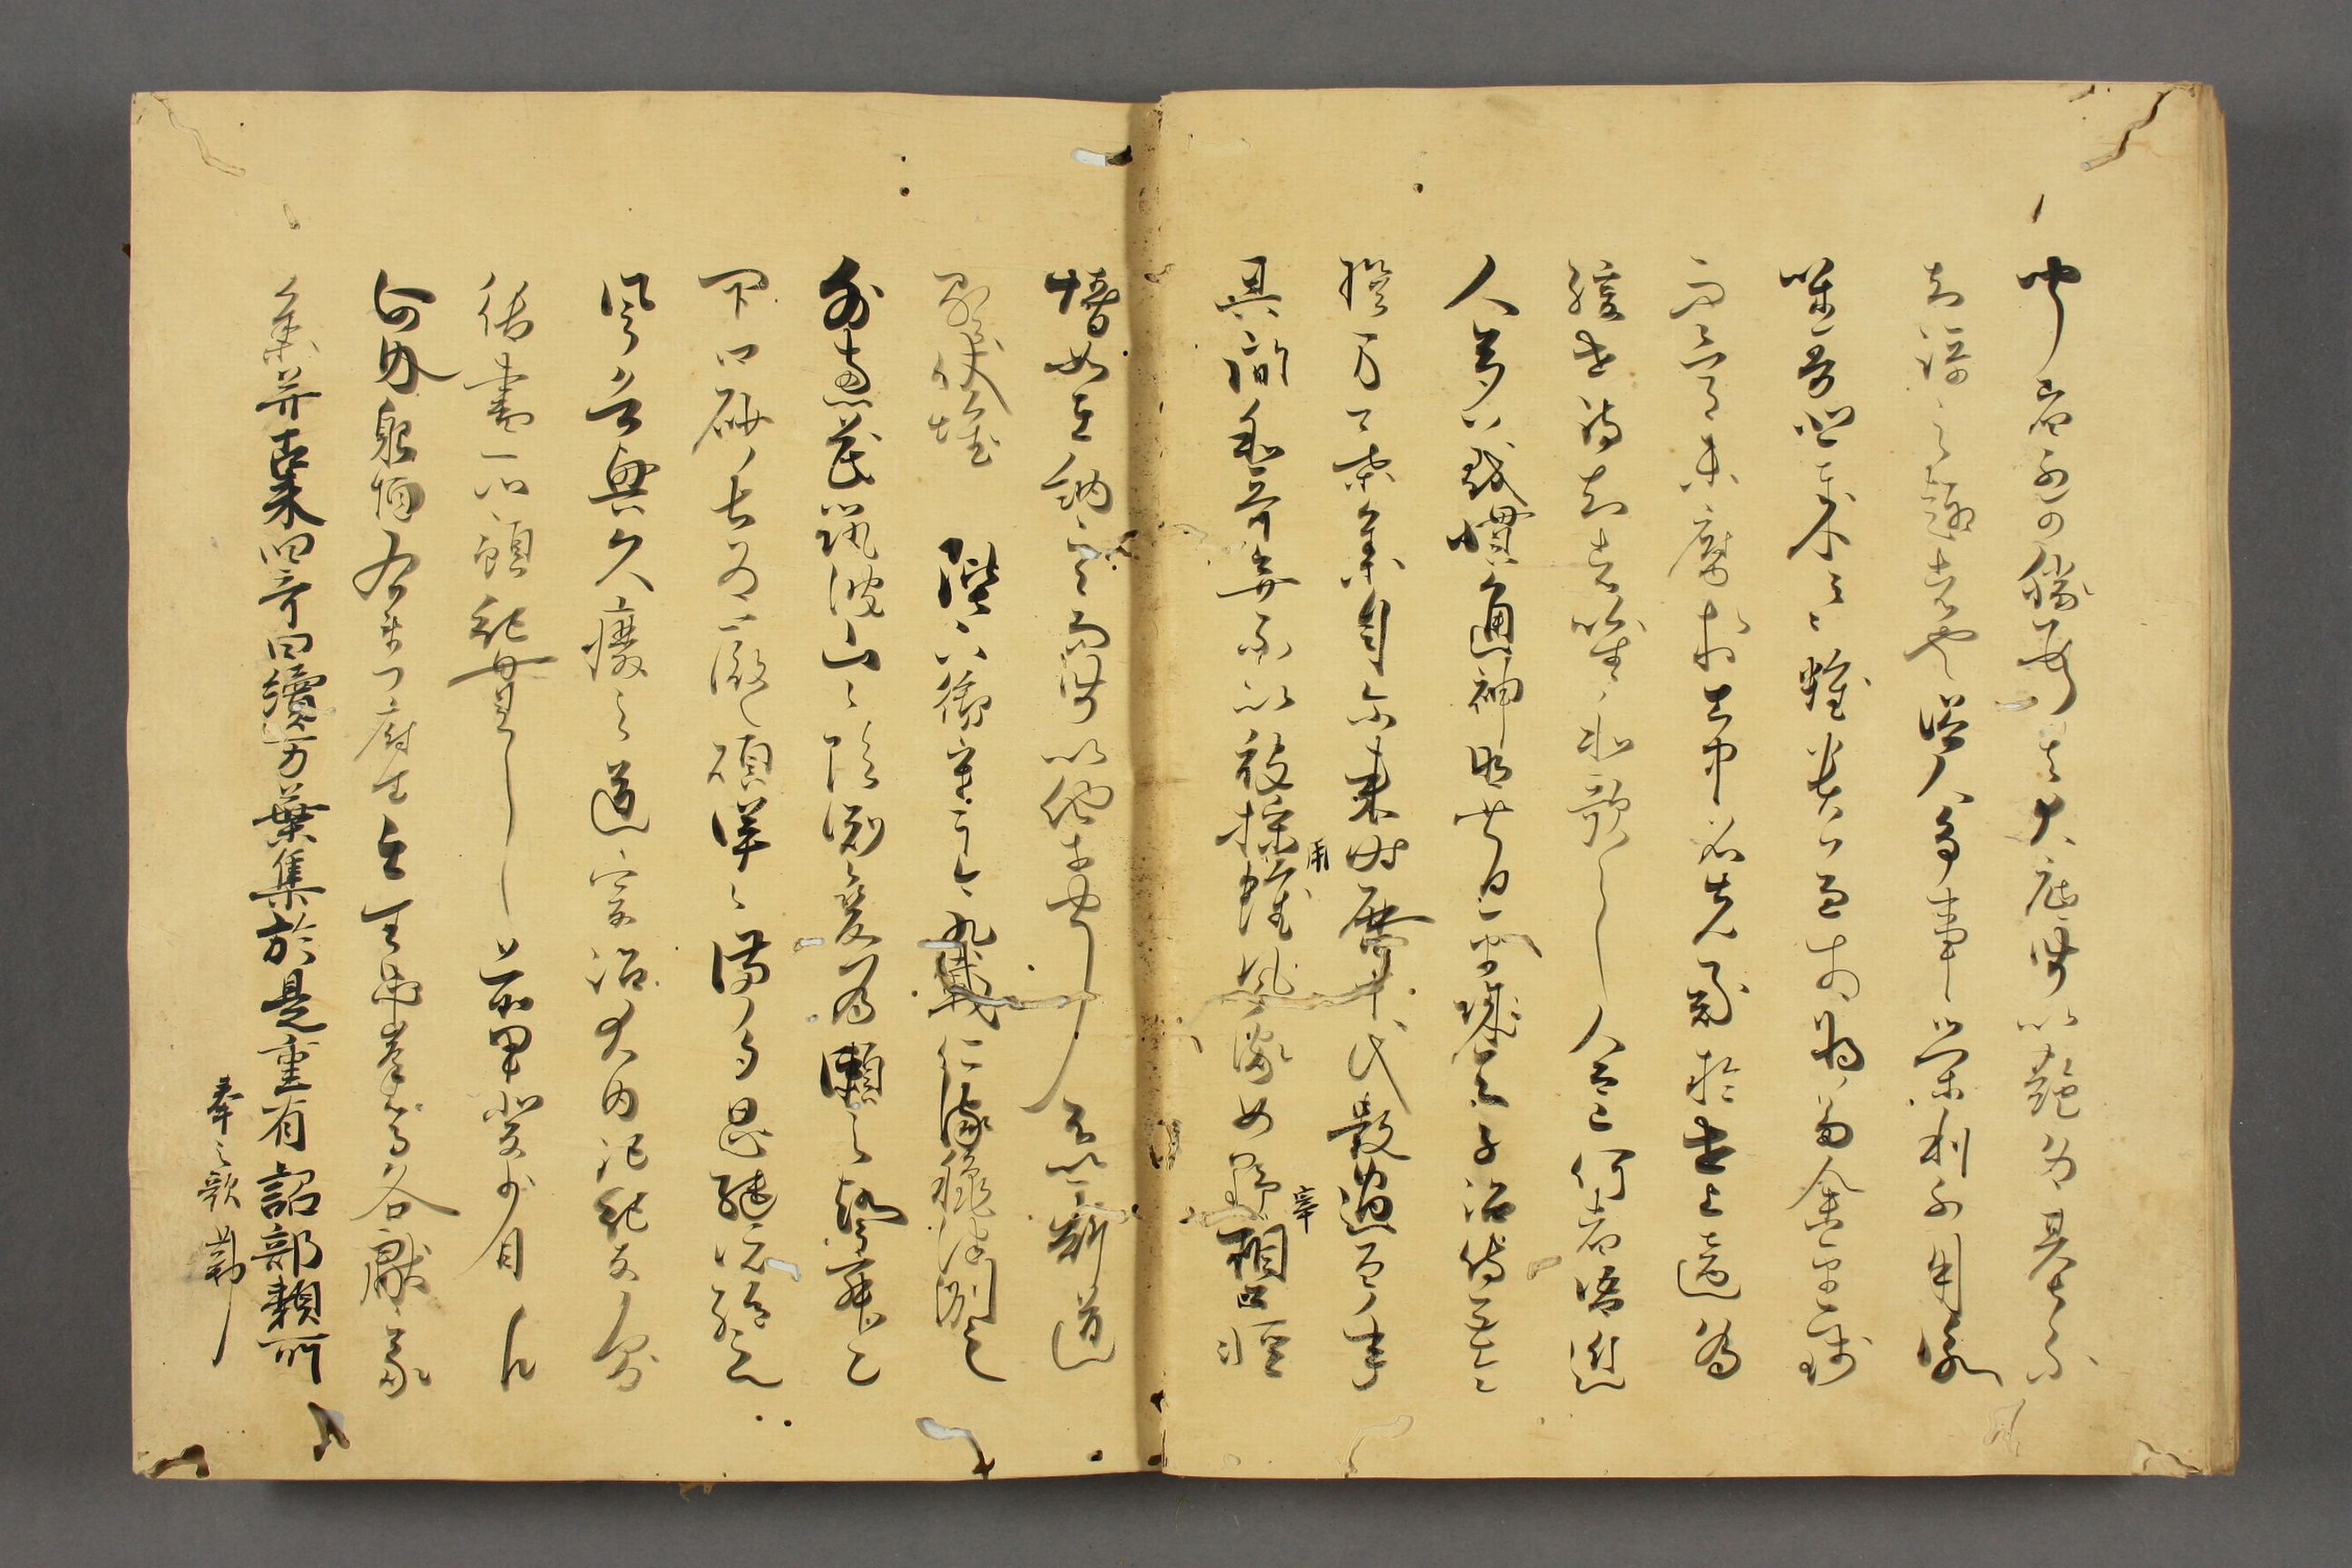 聞者不可勝数其大底皆以艶為基不
知謌之趣者也俗人争事栄利不用詠
咏哥悲哉々々雖貴兼相将富余金銭
而骨未腐於土中名先滅於世上適為
後世被知者唯和歌之人而已何者語近
人耳義慣通神明也昔平城天子詔侍臣令
撰万葉集自尓来時歴十代数過百年
其後和哥弃不被採用雖風流如野宰相軽
情如在納言而皆以他才聞不以斯道
顕伏惟 陛下御宇于今九載仁流秋津洲之
外恵茂筑波山之陰淵変為瀬之声寂々
閇口砂長為巌之頌洋々満耳思継既絶之
風欲興久廃之道爰詔大内記紀友則
御書所預紀貫之前甲斐少目凡
河内躬恒右衛門府生壬生忠岑等各献家
集并古来旧哥曰續万葉集於是重有詔部類所
奉之歌勒